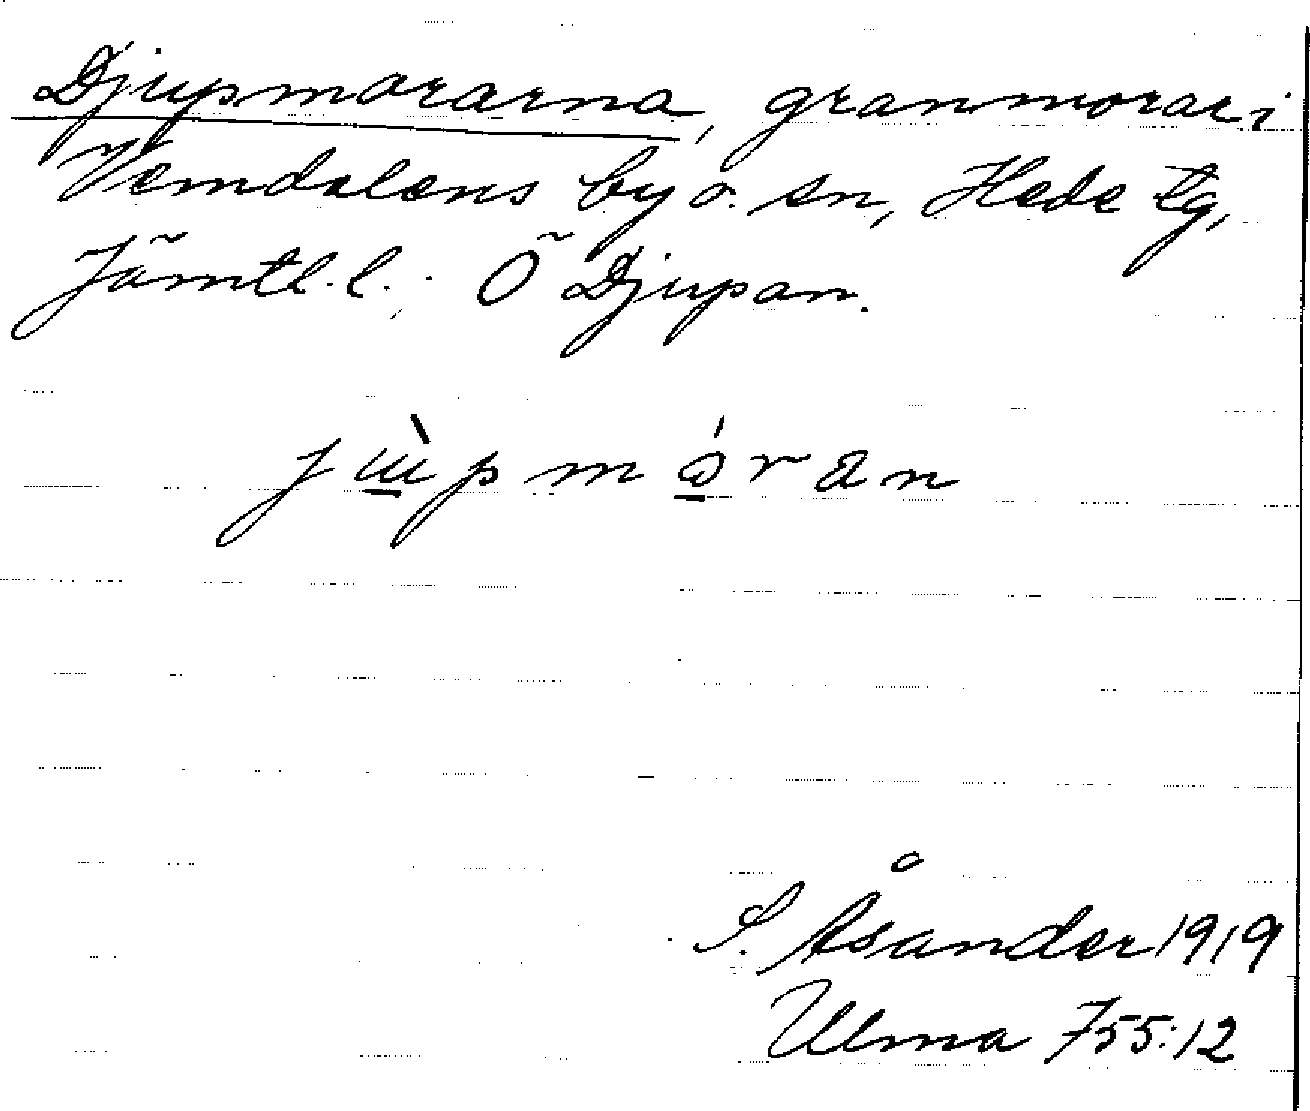 Djupmorarna, granmorar i
Vemdalens by o. sn, Hede tg,
Jämtl. l.; Ö Djupan.
jɯ̀pmóran
S. Åsander 1919
Ulma 755:12